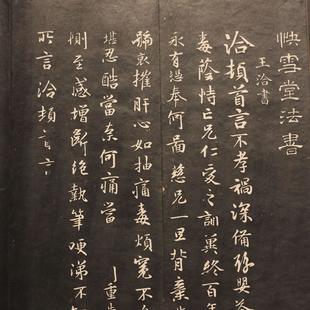 快雪堂法書
王洽書
洽頓首言不孝禍深備豫嬰荼
毒蔭恃亡兄仁愛之訓冀終百年
永有憑奉何圖慈兄一旦背棄
號哀摧肝心如抽痛毒煩冤不
堪忍酷當奈何痛當重
惻至感增斷絕執筆哽涕不
所言洽頓首言